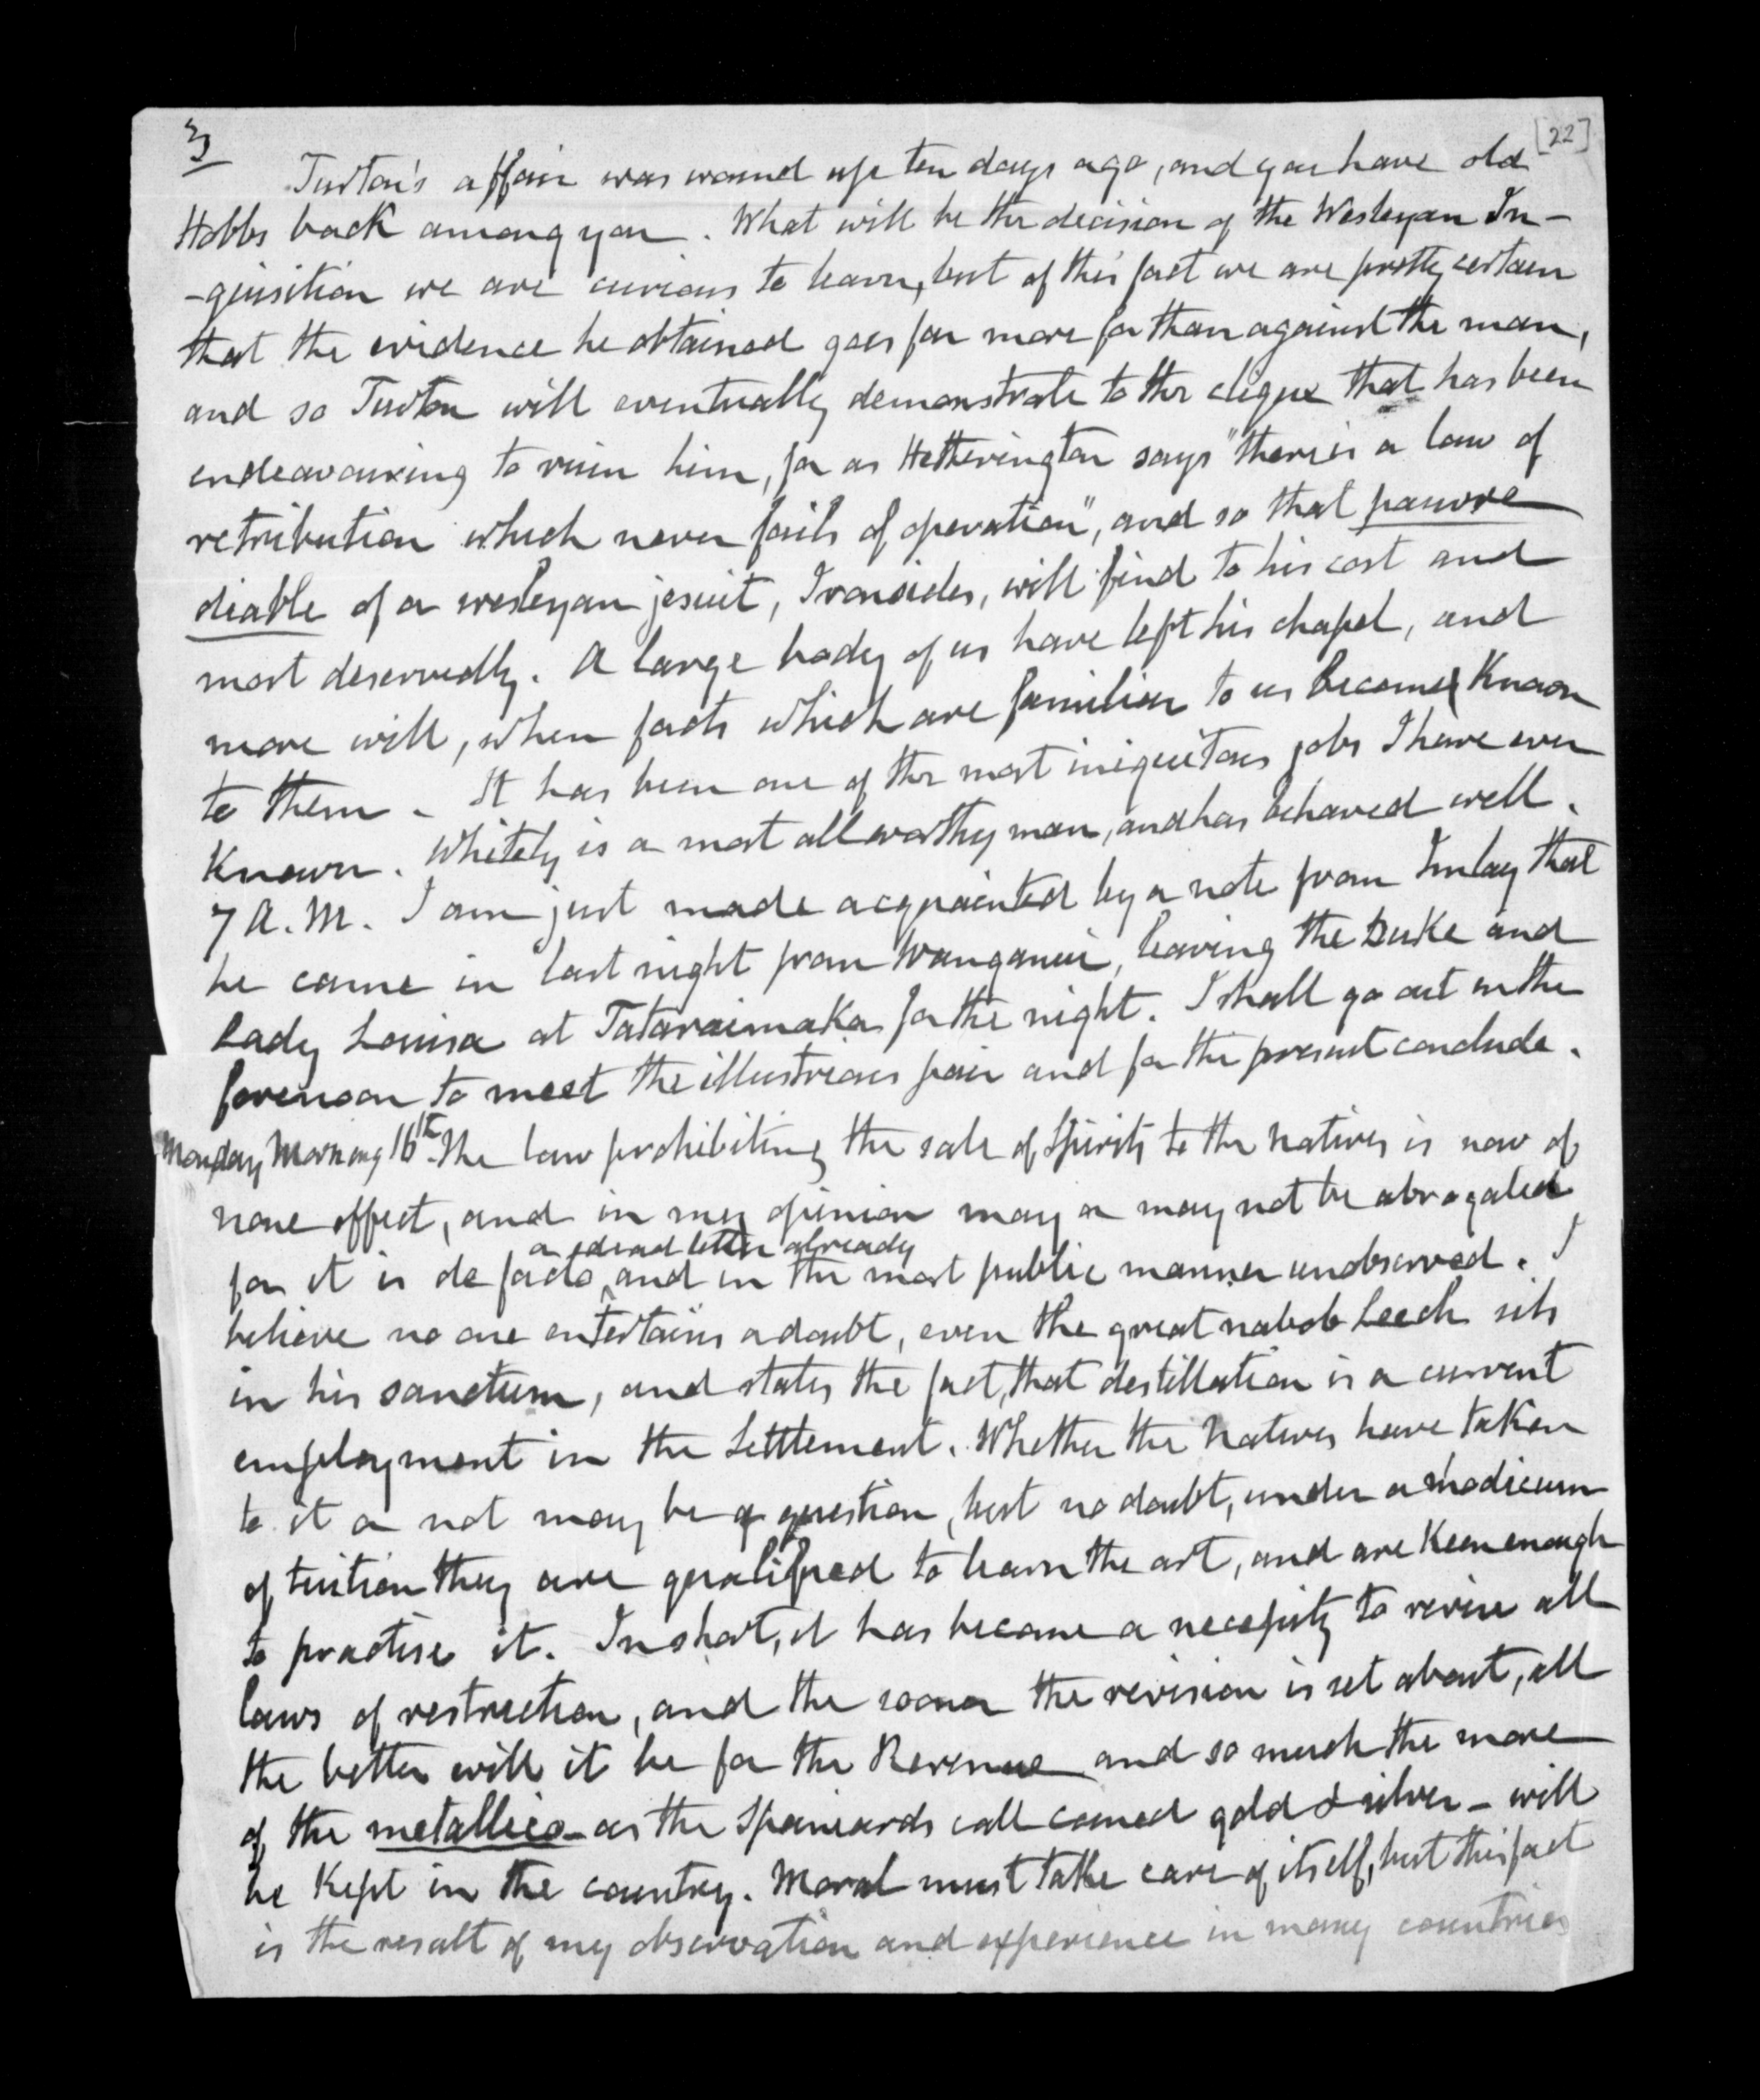 3
[22]
Turton's affair was wound up ten days ago, and you have old
Hobbs back among you. What will be the decision of the Wesleyan In-
-quisition we are curious to learn, but of this fact we are pretty certain
that the evidence he obtained goes far more for than against the man,
and so Turton will eventually demonstrate to the clique that has been
endeavouring to ruin him, for as Hetherington says "there is a law of
retribution which never fails of operation", and so that pauvre
diable of a wesleyan jesuit, Ironsides, will find to his cost and
most deservedly. A large body of us have left his chapel, and
more will, when facts which are familiar to us become known
to them. It has been one of the most iniquitous jobs I have ever
known. Whitely is a most all worthy man, and has behaved well.
7 A.M. I am just made acquainted by a note from Imlay that
he came in last night from Wanganui, leaving the Duke and
Lady Louisa at Tataraimaka for the night. I shall go out in the
forenoon to meet the illustrious pair and for the present conclude.
Monday Morning 16th. The law prohibiting the sale of Spirits to the Natives is now of
none effect, and in my opinion may or may not be abrogated
a dead letter already
for it is de facto ^ and in the most public manner unobserved. I
believe no one entertains a doubt, even the great nabob Leech sits
in his sanctum, and states the fact, that destillation is a current
employment in the Settlement. Whether the Natives have taken
to it or not may be a question, but no doubt, under a modicum
of tuition they are qualified to learn the art, and are keen enough
to practise it. In short, it has become a necessity to revise all
laws of restriction, and the sooner the revision is set about, all
the better will it be for the Revenue and so much the more
of the metallico - as the Spaniards call coined gold & silver - will
be kept in the country. Moral must take care of itself, but this fact
is the result of my observation and experience in many countries